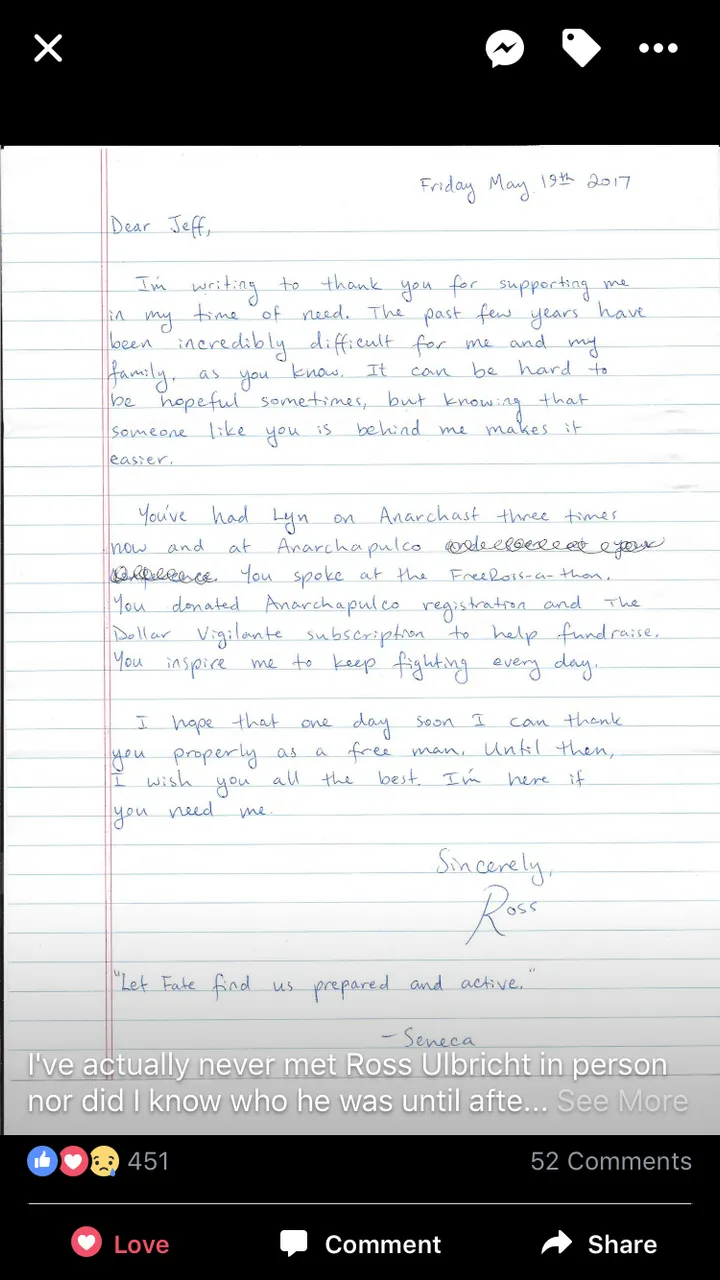 Friday May 19th 2017
Dear Jeff,
I'm writing to thank you for supporting me
in my time of need. The past few years have
been incredibly difficult for me and my
family, as you know. It can be hard to
be hopeful sometimes, but knowing that
someone like you is behind me makes it
easier.
You've had Lyn on Anarchast three times
now and at Anarchapulco
You spoke at the FreeRoss-a-thon.
You donated Anarchapulco registration and The
Dollar Vigilante subscription to help fundraise.
You inspire me to keep fighting every day.
I hope that one day soon I can thank
you properly as a free man. Until then,
I wish you all the best. I'm here if
you need me.
Sincerely,
Ross
"Let Fate find us prepared and active."
- Seneca
I've actually never met Ross Ulbricht in person
nor did I know who he was until afte... See More
451
52 Comments
Love
Comment
Share